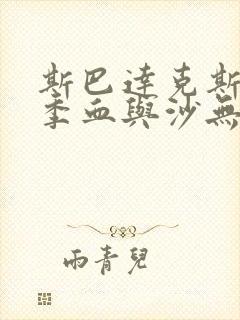 斯巴達克斯
季血與沙無
雨青兒